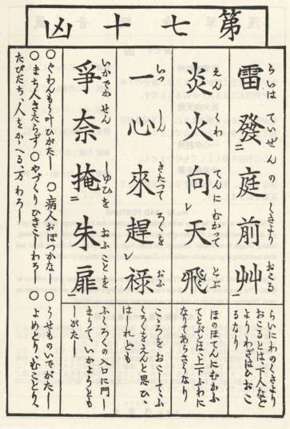 第七十凶
雷發庭前艸
らいは ていぜんの くさより おこる
らいにわのくさより
おこるとは、下人など
よりわざはひおこ
るなり
炎火向天飛
えんくわ てんに むかつて とぶ
ほのほてんにむかふ
てとぶとは、上下ふわに
なりてあらさうなり
一心來趕祿
いつしん きたつて ろくを おふ
こゝろをおこしてふ
くろくをえんと思ひ
はしれども
爭奈掩朱扉
いかでかせん しゆひを おふことを
ふくろくの入口に門し
まりて、いかようとも
しがたし
○そくわんもう叶ひがたし ○病人おぼつかなし ○うせものいでがたし
○まち人きたらず ○やづくりひきこしわろし ○よめとり、むことり、
たびだち、人をかゝへる、万わろし